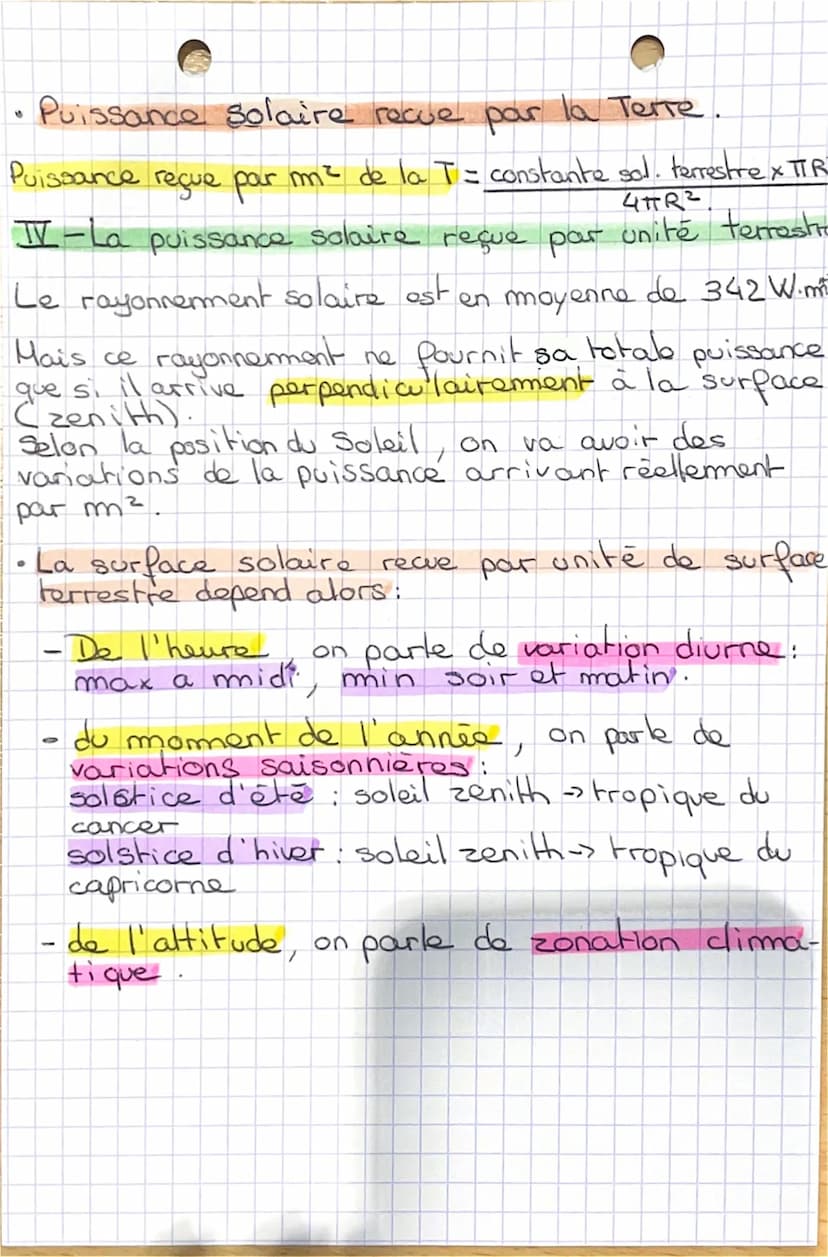 • Puissance solaire recue par la Terre.
Puissance reçue par m² de la T = constante sol. terrestre x πR²
4πR².
IV - La puissance solaire reçue par unité terrestre
Le rayonnement solaire est en moyenne de 342 W.m²
Mais ce rayonnement ne fournit sa totale puissance
que si il arrive perpendiculairement à la surface
(zenith).
Selon la position du Soleil, on va avoir des
variations de la puissance arrivant réellement
par m².
• La surface solaire recue par unité de surface
terrestre depend alors :
- De l'heure, on parle de variation diurne :
max a midi, min soir et matin.
- du moment de l'année, on parle de
variations saisonnières :
solstice d'été : soleil zenith -> tropique du
cancer
solstice d'hiver : soleil zenith -> tropique du
capricorne
- de l'altitude, on parle de zonation clima-
tique.